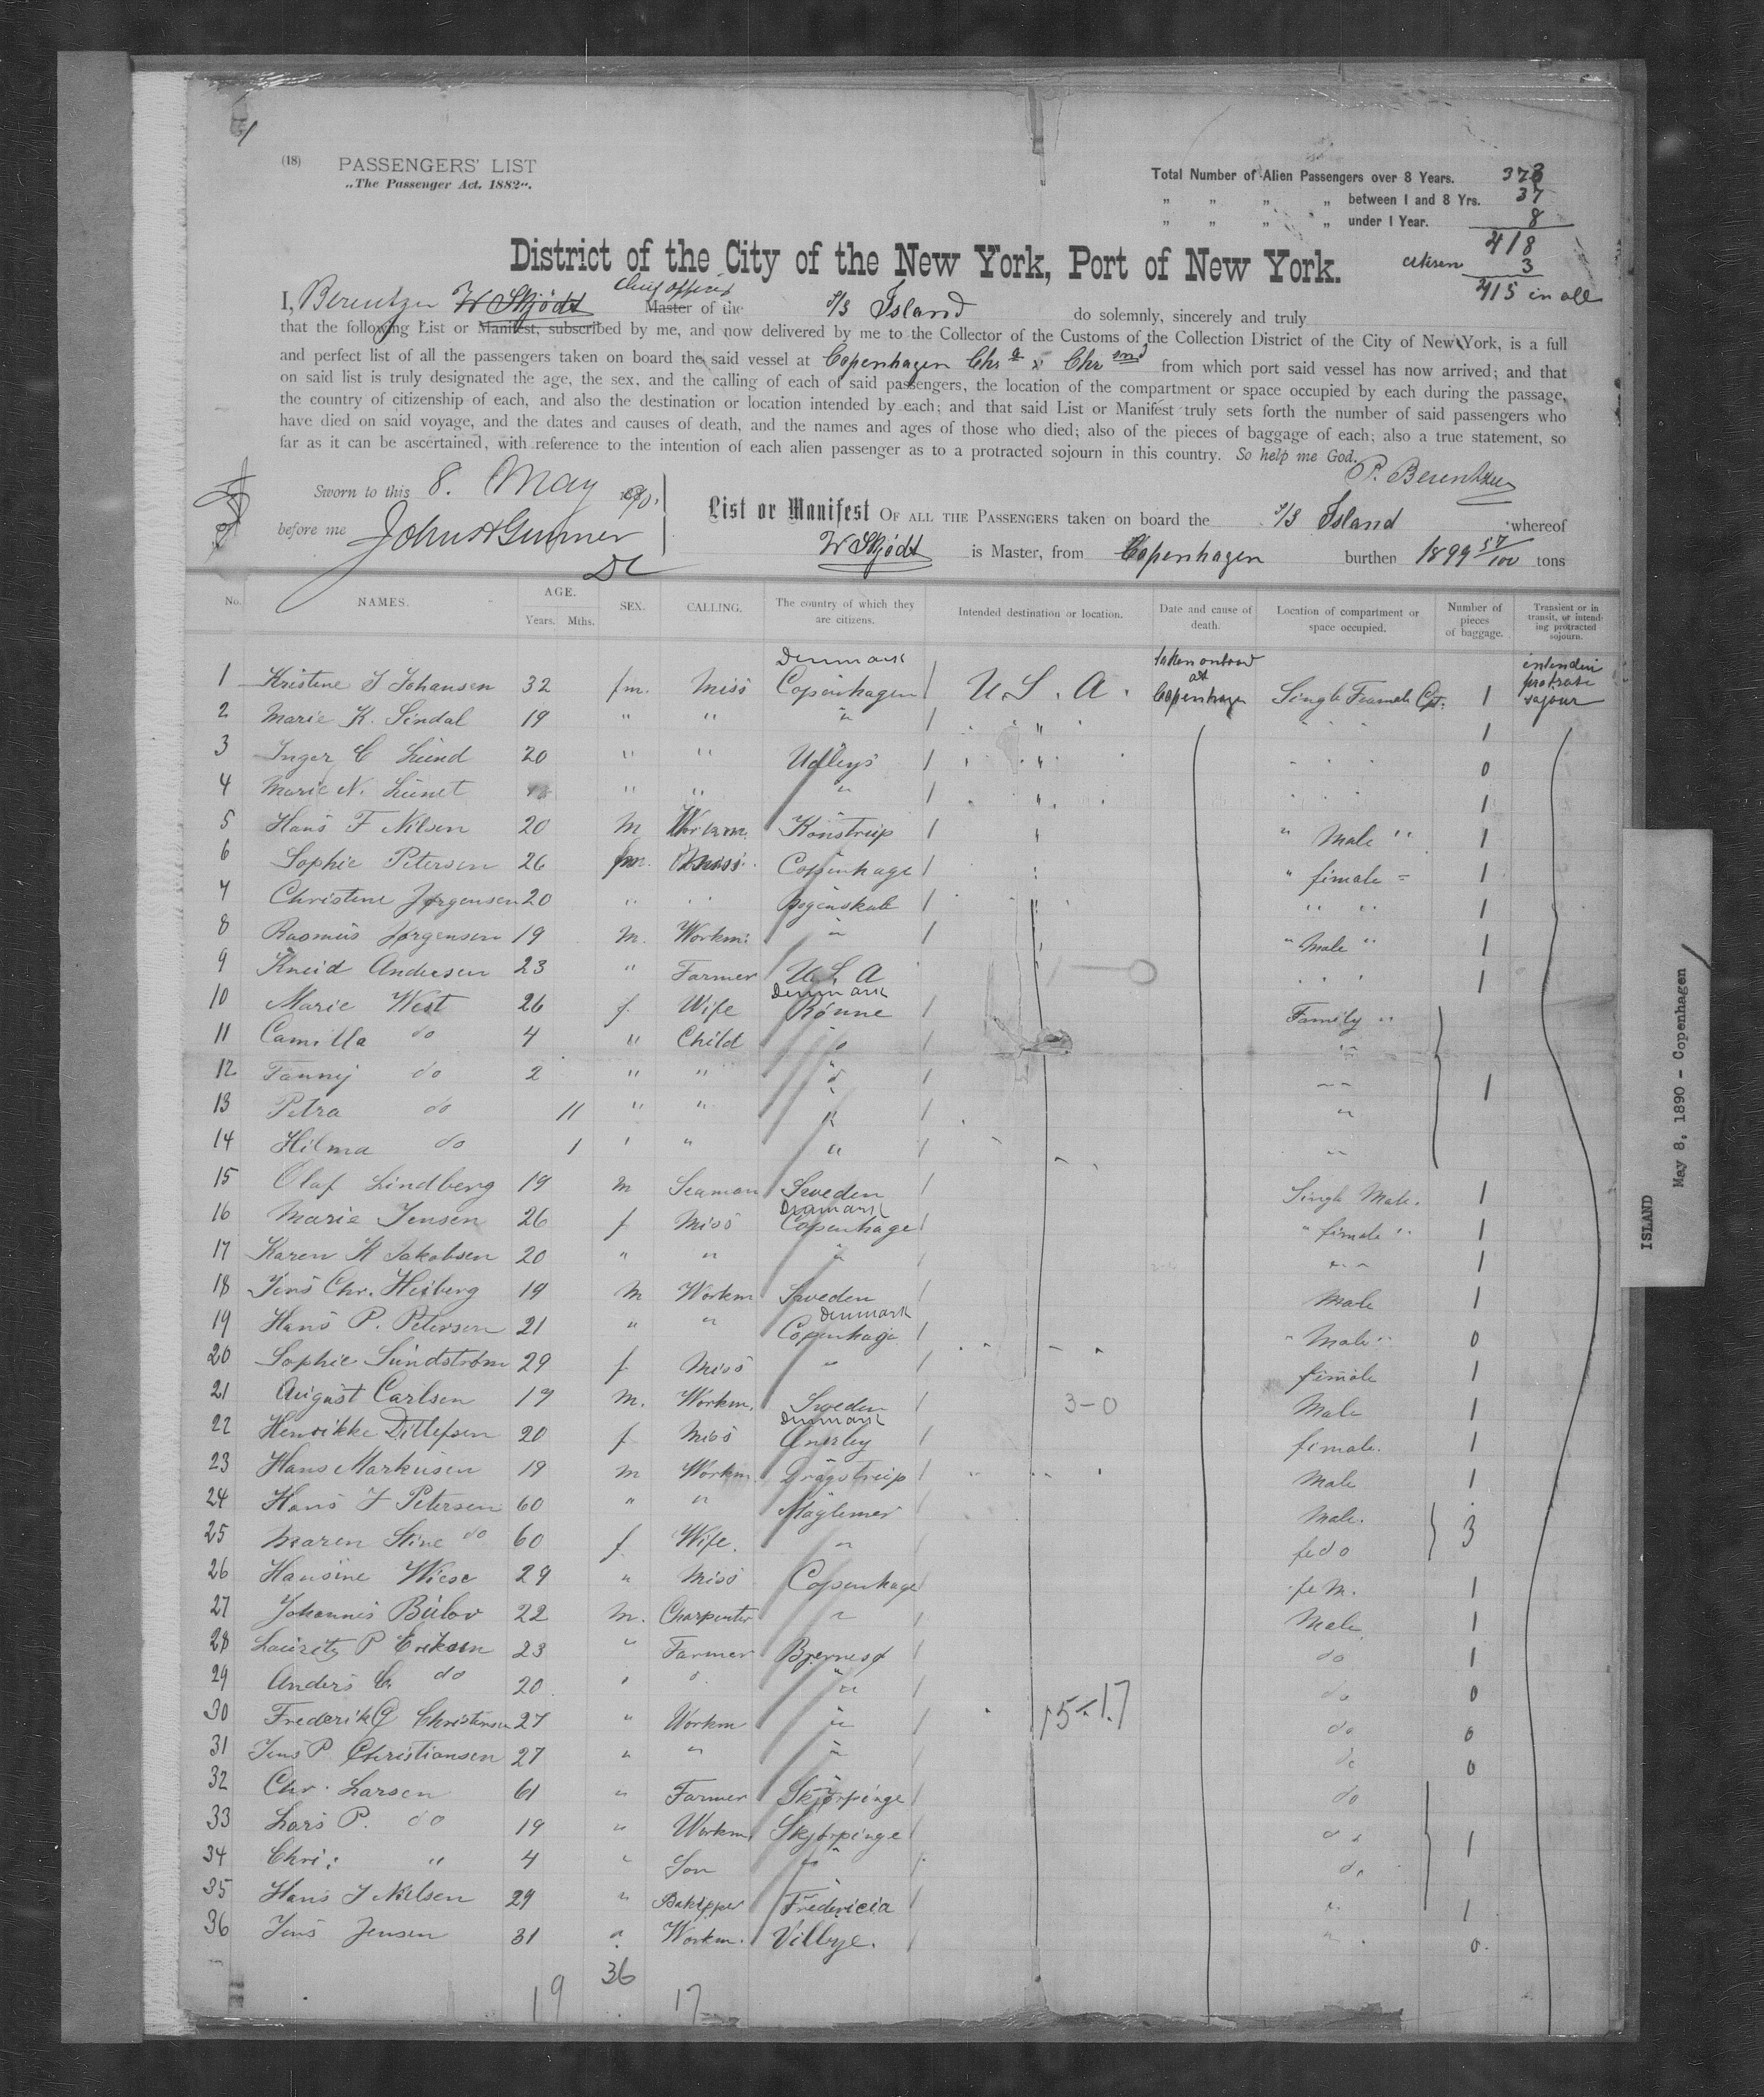 (18) PASSENGERS' LIST
„The Passenger Act, 1882“.
Total Number of Alien Passengers over 8 Years. 373
„ „ „ „ between 1 and 8 Yrs. 37
„ „ „ „ under 1 Year. 8
418
citisen 3
415 in all
District of the City of the New York, Port of New York.
chief officer
I, Berentzen W Skjödt Master of the S/S Island do solemnly, sincerely and truly
that the following List or Manifest, subscribed by me, and now delivered by me to the Collector of the Customs of the Collection District of the City of New York, is a full
and perfect list of all the passengers taken on board the said vessel at Copenhagen Chr a & Chr snd from which port said vessel has now arrived; and that
on said list is truly designated the age, the sex, and the calling of each of said passengers, the location of the compartment or space occupied by each during the passage,
the country of citizenship of each, and also the destination or location intended by each; and that said List or Manifest truly sets forth the number of said passengers who
have died on said voyage, and the dates and causes of death, and the names and ages of those who died; also of the pieces of baggage of each; also a true statement, so
far as it can be ascertained, with reference to the intention of each alien passenger as to a protracted sojourn in this country. So help me God.
P. Berentzen
Sworn to this 8. May 1890.
before me
List or Manifest OF ALL THE PASSENGERS taken on board the S/S Island whereof
W Skjödt is Master, from Copenhagen burthen 1899 57/100 tons
No. NAMES. AGE. Years. Mths. SEX. CALLING. The country of which they are citizens. Intended destination or location. Date and cause of death. Location of compartment or space occupied. Number of pieces of baggage. Transient or in transit, or intending protracted sojourn.
1 Kristine J Johansen 32 fm. Miss Denmark Copenhagen U.S.A. taken onboard at Copenhagen Single Femal Cpt. 1
2 Marie K. Lindal 19 " " " " 1
3 Inger C Lund 20 " " Udleys " 0
4 Marie N. " " " " 1
5 Hans F Nilsen 20 M Workm. Konstrup " " Male " 1
6 Sophie Petersen 26 fm. Miss Copenhage " " fimale " 1
7 Christine Jørgensen 20 " " " " " 1
8 Rasmus Jørgensen 19 M. Workm. " " " Male " 1
9 Andersen 23 " Farmer U S A 1—0 " 1
10 Marie West 26 f. Wife Denmark Rönne Family "
11 Camilla do 4 " Child " "
12 Fanny do 2 " " " " 1
13 Petra do 11 " " " "
14 Hilma do 1 " " " "
15 Olaf Lindberg 19 M Seaman Sweden Single Male. 1
16 Marie Jensen 26 f Miss Denmark Copenhage " fimale " 1
17 Karen K Jakobsen 20 " " " " 1
18 Jens Chr. Heiberg 19 M Workm Sweden Male 1
19 Hans P. Petersen 21 " " Denmark Copenhage " Male " 0
20 Sophie Sundström 29 f Miss " fimale 1
21 August Carlsen 19 M. Workm. Sweden 3-0 Male 1
22 Henrikke Ditlefsen 20 f Miss Denmark fimale. 1
23 Hans Markusen 19 M Workm. Dragstrup Male 1
24 Hans J Petersen 60 " " Maglemer Male. 3
25 Maren Stine do 60 f Wife. " fe do
26 Hansine Wiese 29 " Miss Copenhage fe M. 1
27 Johannes Bülov 22 M. Charpenter " Male 1
28 Lauritz P Eriksen 23 " Farmer do 1
29 Anders C. do 20 " " " do 0
30 Frederik G Christensen 27 " Workm " 15-17 do 0
31 Jens P Christiansen 27 " " " do 0
32 Chr. Larsen 61 " Farmer Skjørpinge do
33 Lars P. do 19 " Workm. Skjørpinge do 1
34 Chri: " 4 " Son " do
35 Hans J Nilsen 29 " Fredericia " 1
36 Jens Jensen 31 " Workm. Villbye. " 0.
36
19 17
ISLAND
May 8, 1890 - Copenhagen